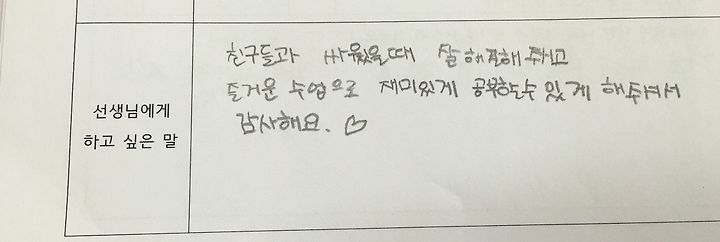 선생님에게
하고 싶은 말
친구들과 싸웠을때 잘 해결해 주시고
즐거운 수업으로 재미있게 공부할수 있게 해주셔서
감사해요. ♡